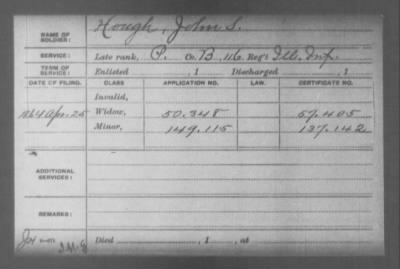 NAME OF SOLDIER: Hough, John S.
SERVICE: Late rank, P. Co. B, 116 Reg't Ill. Inf.
TERM OF SERVICE: Enlisted , 1 Discharged , 1
DATE OF FILING. CLASS APPLICATION NO. LAW. CERTIFICATE NO.
Invalid,
1864 Apr. 25 Widow, 50.348 57.405
Minor, 149.115 137.142
ADDITIONAL SERVICES:
REMARKS:
Died , 1 , at